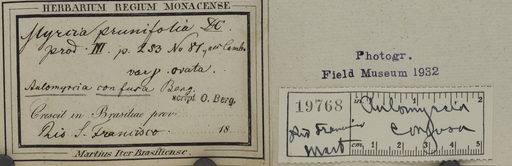 HERBARIUM REGIUM MONACENSE
Myrcia prunifolia DC.
prod. III. p. 253 No 81, per Cambs
var β. ovata.
Aulomyrcia confusa Berg.
script. O. Berg.
Crescit in Brasiliae prov.
Rio S. Francisco. 18
Martius Iter Brasiliense.
Photogr.
Field Museum 1932
19768
in. 1 2
Aulomyrcia
Rio Francisco confusa
Mart
cm. 1 2 3 4 5